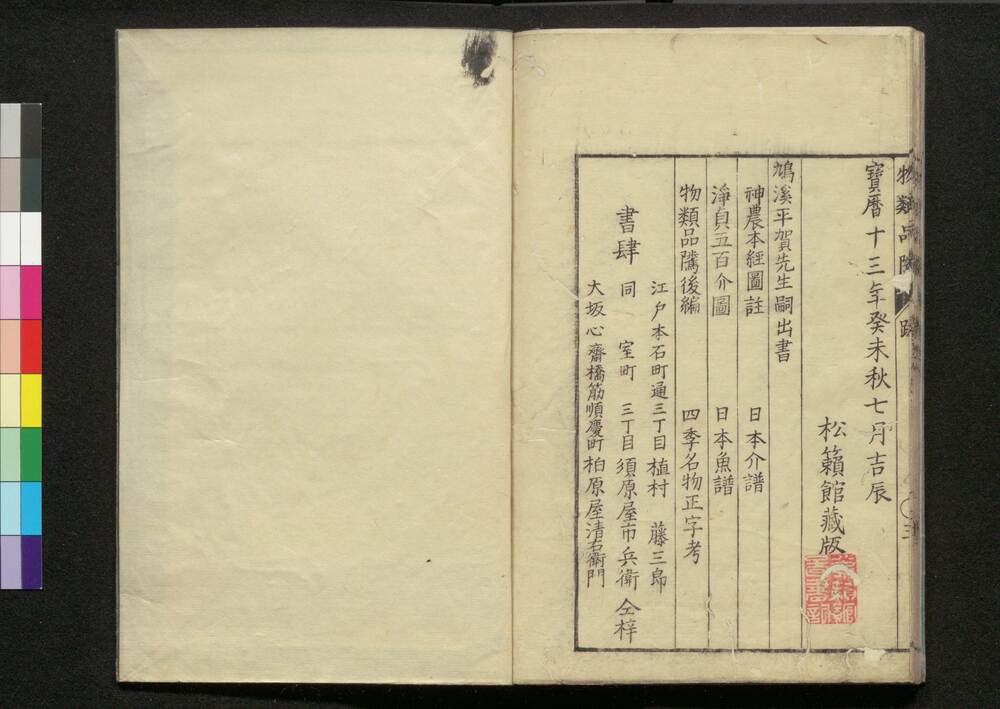 物類品隲 跋 〇三
寶曆十三年癸未秋七月吉辰
松籟館藏版
鳩溪平賀先生嗣出書
神農本經圖註 日本介譜
淨貞五百介圖 日本魚譜
物類品隲後編 四季名物正字考
書肆
江戶本石町通三丁目 植村 藤三郎
同 室町 三丁目 須原屋市兵衛 仝梓
大坂心齋橋筋順慶町 柏原屋清右衛門